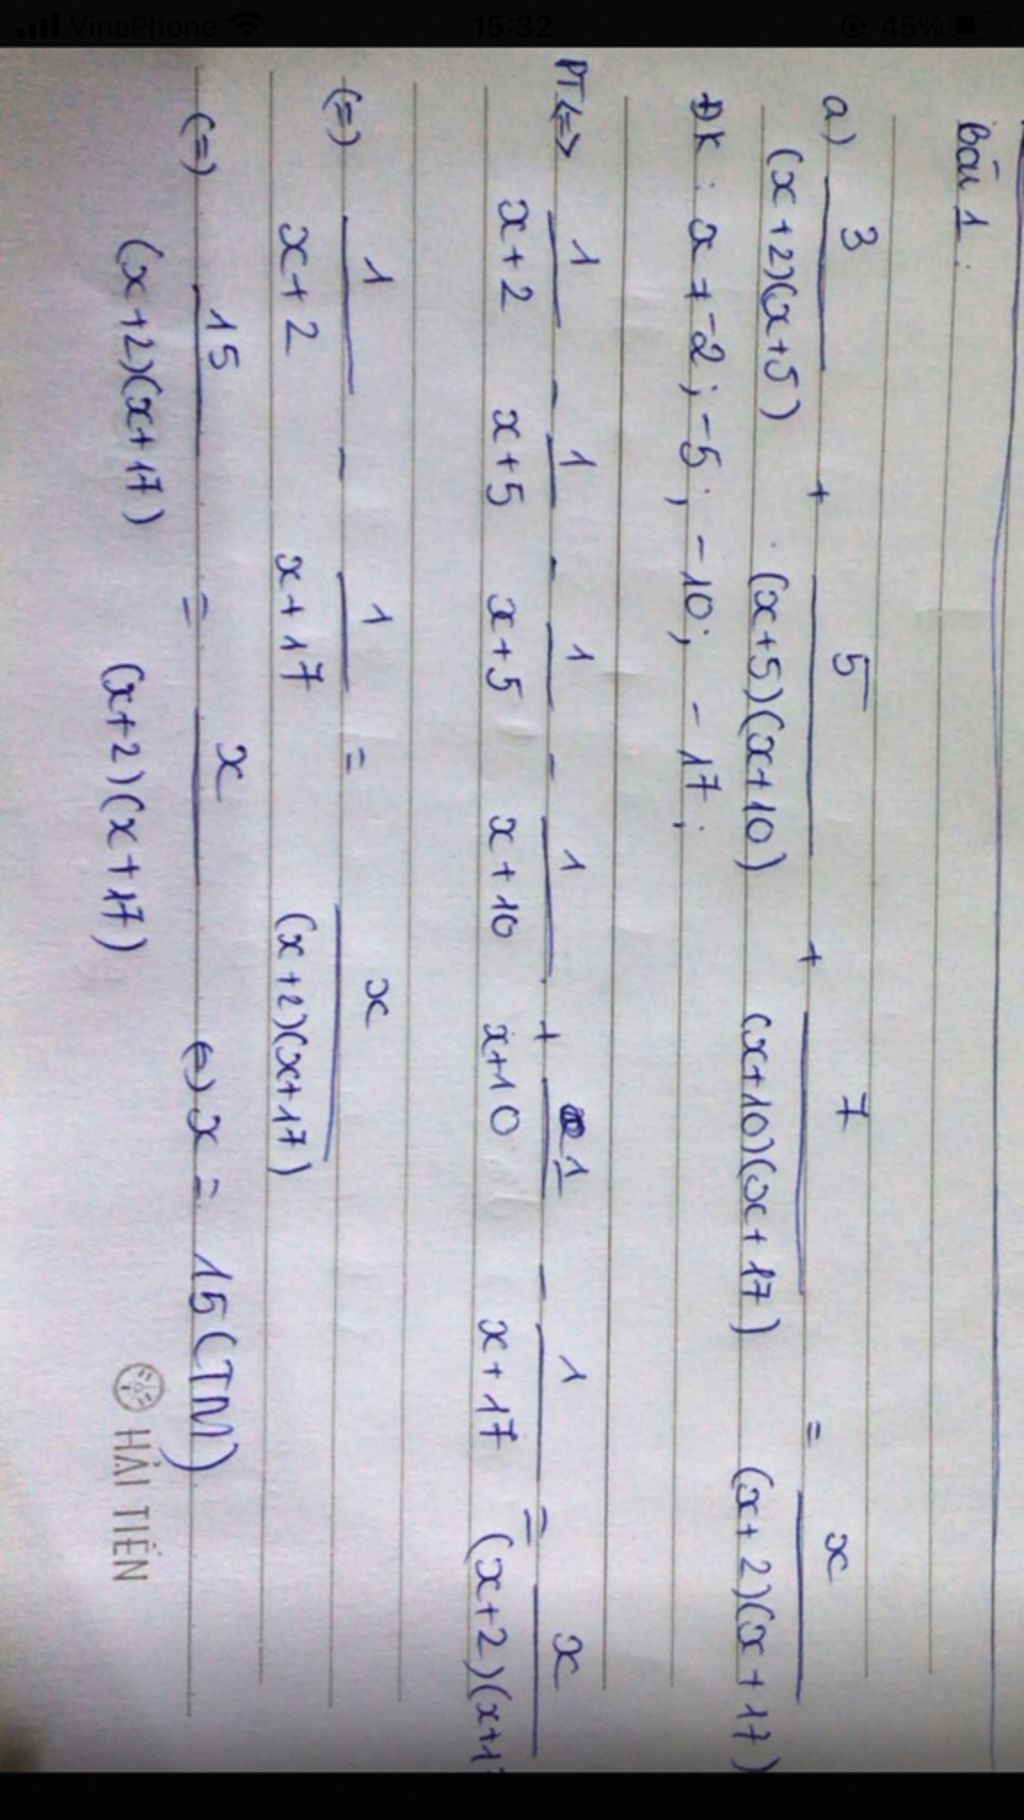 VinaPhone 15:32 45%
Bài 1:
a) 3/(x+2)(x+5) + 5/(x+5)(x+10) + 7/(x+10)(x+17) = x/(x+2)(x+17)
ĐK: x ≠ -2; -5; -10; -17;
PT <=> 1/x+2 - 1/x+5 - 1/x+5 - 1/x+10 + 1/x+10 - 1/x+17 = x/(x+2)(x+1
(=) 1/x+2 - 1/x+17 = x/(x+2)(x+17)
(=) 15/(x+2)(x+17) = x/(x+2)(x+17) (=) x = 15 (TM)
HẢI TIẾN